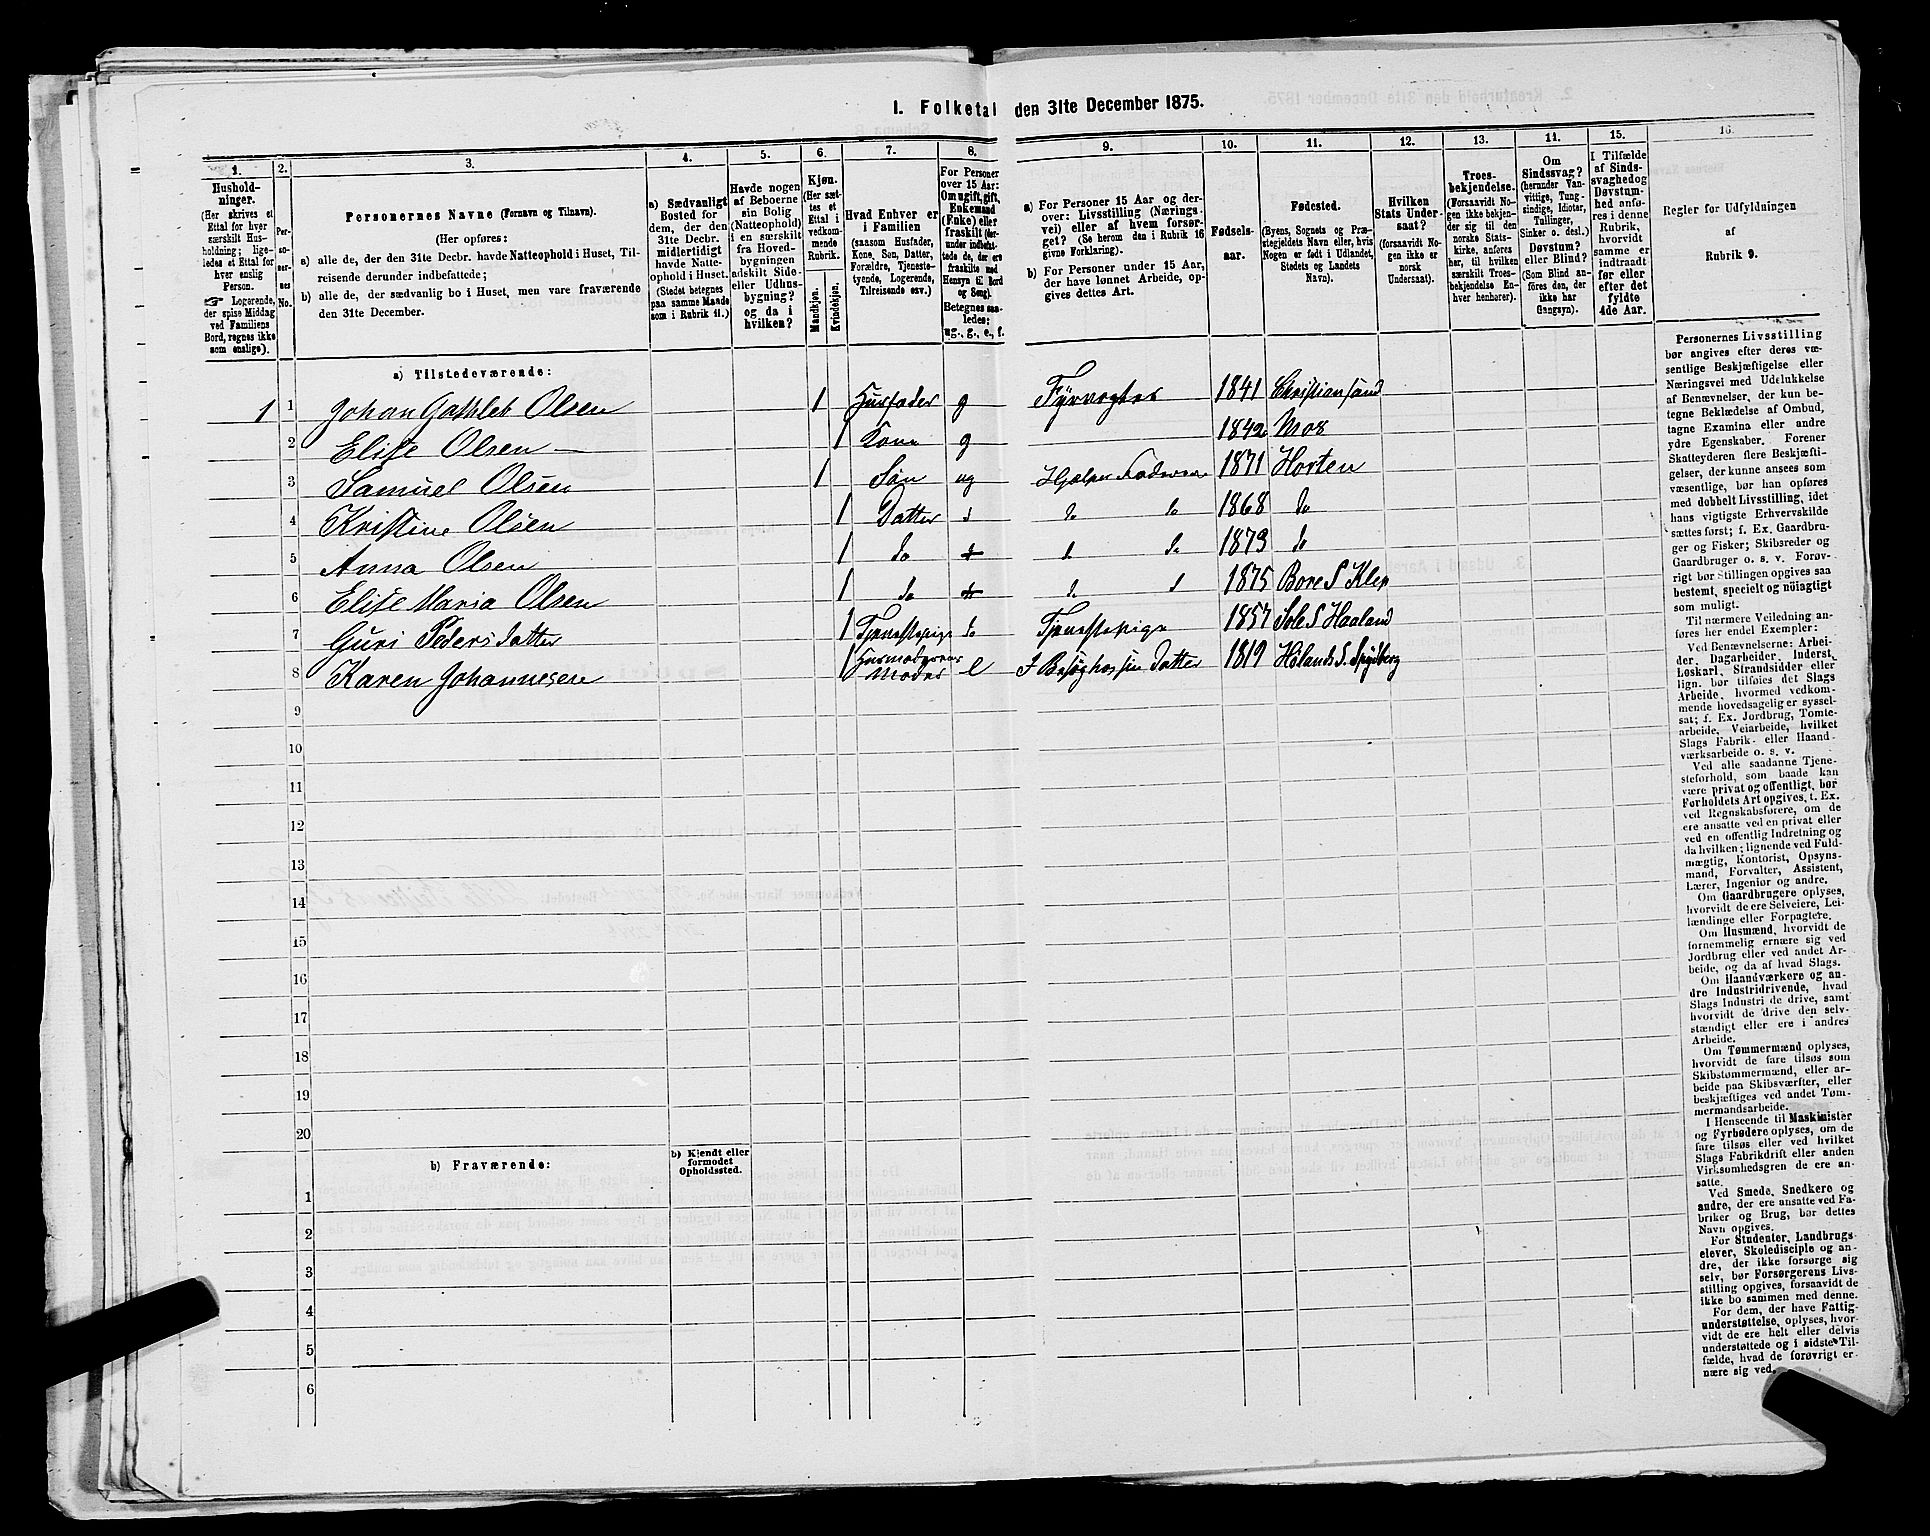 1. Folketal den 31te December 1875.
1. 2. 3. 4. 5. 6. 7. 8. 9. 10. 11. 12. 13. 14. 15. 16.
Hushold-
ninger.
(Her skrives et
Ettal for hver
særskilt Hus-
holdning; lige-
ledes et Ettal for
hver enslig
Person.
☞ Logerende,
der spise Middag
ved Familiens
Bord, regnes ikke
som enslige).
Per-
so-
ner-
nes
No.
Personernes Navne (Fornavn og Tilnavn).
(Her opføres:
a) alle de, der den 31te Decbr. havde Natteophold i Huset, Til-
reisende derunder indbefattede;
b) alle de, der sædvanlig bo i Huset, men vare fraværende
den 31te December.
a) Sædvanligt
Bosted for
dem, der den
31te Decbr.
midlertidigt
havde Natte-
ophold i Huset.
(Stedet betegnes
paa samme Maade
som i Rubrik 11.)
Havde nogen
af Beboerne
sin Bolig
(Natteophold)
i en særskilt
fra Hoved-
bygningen
adskilt Side-
eller Udhus-
bygning?
og da i
hvilken?
Kjøn.
(Her sæt-
tes et
Ettal i
vedkom-
mende
Rubrik.
Mandkjøn.
Kvindekjøn.
Hvad Enhver er
i Familien
(saasom Husfader,
Kone, Søn, Datter,
Forældre, Tjeneste-
tyende, Logerende,
Tilreisende osv.)
For Personer
over 15 Aar:
Om ugift, gift,
Enkemand
(Enke) eller
fraskilt (der-
under indbefat-
tede de, der ere
fraskilte med
Hensyn til Bord
og Seng).
Betegnes saa-
ledes:
ug., g., e., f.
a) For Personer 15 Aar og der-
over: Livsstilling (Nærings-
vei) eller af hvem forsør-
get? (Se herom den i Rubrik 16
givne Forklaring).
b) For Personer under 15 Aar,
der have lønnet Arbeide, op-
gives dettes Art.
Fødsels-
aar.
Fødested.
(Byens, Sognets og Præ-
stegjeldets Navn eller, hvis
Nogen er født i Udlandet,
Stedets og Landets
Navn).
Hvilken
Stats Under-
saat?
(forsaavidt No-
gen ikke er
norsk
Undersaat).
Troes-
bekjendelse.
(Forsaavidt No-
gen ikke bekjen-
der sig til den
norske Stats-
kirke, anføres
her, til hvilken
særskilt Troes-
bekjendelse En-
hver henhører).
Om
Sindssvag?
(herunder Van-
vittige, Tung-
sindige, Idioter,
Tullinger,
Sinker o. desl.)
Døvstum?
eller Blind?
(Som Blind an-
føres den, der
ikke har
Gangsyn).
I Tilfælde
af Sinds-
svaghed og
Døvstum-
hed anfø-
res i denne
Rubrik,
hvorvidt
samme er
indtraadt
før eller
efter det
fyldte
4de Aar.
Regler for Udfyldningen
af
Rubrik 9.
a) Tilstedeværende:
1 1 Johan Gothleb Olsen 1 Husfader g Fyrvogter 1841 Christiansand
2 Elise Olsen — 1 Kone g 1842 Mos
3 Samuel Olsen 1 Søn ug Hjælper Faderen 1871 Horten
4 Kristine Olsen 1 Datter d do do 1868 do
5 Anna Olsen 1 do do 1873 do
6 Elise Maria Olsen 1 do 1875 Bore S Klep
7 Guri Pedersdatter 1 Tjenestepige do Tjenestepige 1857 Sole S Haaland
8 Karen Johannesen 1 Husmoderens Moder e I Besøg hos sin Datter 1819 Hølands S. Spydberg
9
10
11
12
13
14
15
16
17
18
19
20
b) Fraværende:
b) Kjendt eller
formodet
Opholdssted.
1
2
3
4
5
6
Personernes Livsstilling
bør angives efter deres væ-
sentlige Beskjæftigelse eller
Næringsvei med Udelukkelse
af Benævnelser, der kun be-
tegne Beklædelse af Ombud,
tagne Examina eller andre
ydre Egenskaber. Forener
Skatteyderen flere Beskjæfti-
gelser, der kunne ansees som
væsentlige, bør han opføres
med dobbelt Livsstilling, idet
hans vigtigste Erhvervskilde
sættes først; f. Ex. Gaardbru-
ger og Fisker; Skibsreder og
Gaardbruger o. s. v. Forøv-
rigt bør Stillingen opgives saa
bestemt, specielt og nøiagtigt
som muligt.
Til nærmere Veiledning an-
føres her endel Exempler:
Ved Benævnelserne: Arbei-
der, Dagarbeider, Inderst,
Løskarl, Strandsidder eller
lign. bør tilføies det Slags
Arbeide, hvormed vedkom-
mende hovedsagelig er syssel-
sat; f. Ex. Jordbrug, Tomte-
arbeide, Veiarbeide, hvilket
Slags Fabrik- eller Haand-
værksarbeide o. s. v.
Ved alle saadanne Tjene-
steforhold, som baade kan
være privat og offentligt, bør
Forholdets Art opgives, t. Ex.
ved Regnskabsførere, om de
ere ansatte ved en privat eller
ved en offentlig Indretning og
da hvilken; lignende ved Fuld-
mægtig, Kontorist, Opsyns-
mand, Forvalter, Assistent,
Lærer, Ingeniør og andre.
Om Gaardbrugere oplyses,
hvorvidt de ere Selveiere, Lei-
lændinge eller Forpagtere.
Om Husmænd, hvorvidt de
fornemmelig ernære sig ved
Jordbrug eller ved andet Ar-
beide, og da af hvad Slags.
Om Haandværkere og an-
dre Industridrivende, hvad
Slags Industri de drive, samt
hvorvidt de drive den selv-
stændigt eller ere i andres
Arbeide.
Om Tømmermænd oplyses,
hvorvidt de fare tilsøs som
Skibstømmermænd, eller ar-
beide paa Skibsværfter, eller
beskjæftiges ved andet Tøm-
mermandsarbeide.
I Henseende til Maskinister
og Fyrbødere oplyses, om de
fare tilsøs eller ved hvilket
Slags Fabrikdrift eller anden
Virksomhedsgren de ere an-
satte.
Ved Smede, Snedkere og
andre, der ere ansatte ved Fa-
briker og Brug, bør dettes
Navn opgives.
For Studenter, Landbrugs-
elever, Skoledisciple og an-
dre, der ikke forsørge sig
selv, bør Forsørgerens Livs-
stilling opgives, forsaavidt de
ikke bo sammen med denne.
For dem, der have Fattig-
understøttelse, oplyses, hvor-
vidt de ere helt eller delvis
understøttede og i sidste Til-
fælde, hvad de forøvrigt er-
nære sig ved.